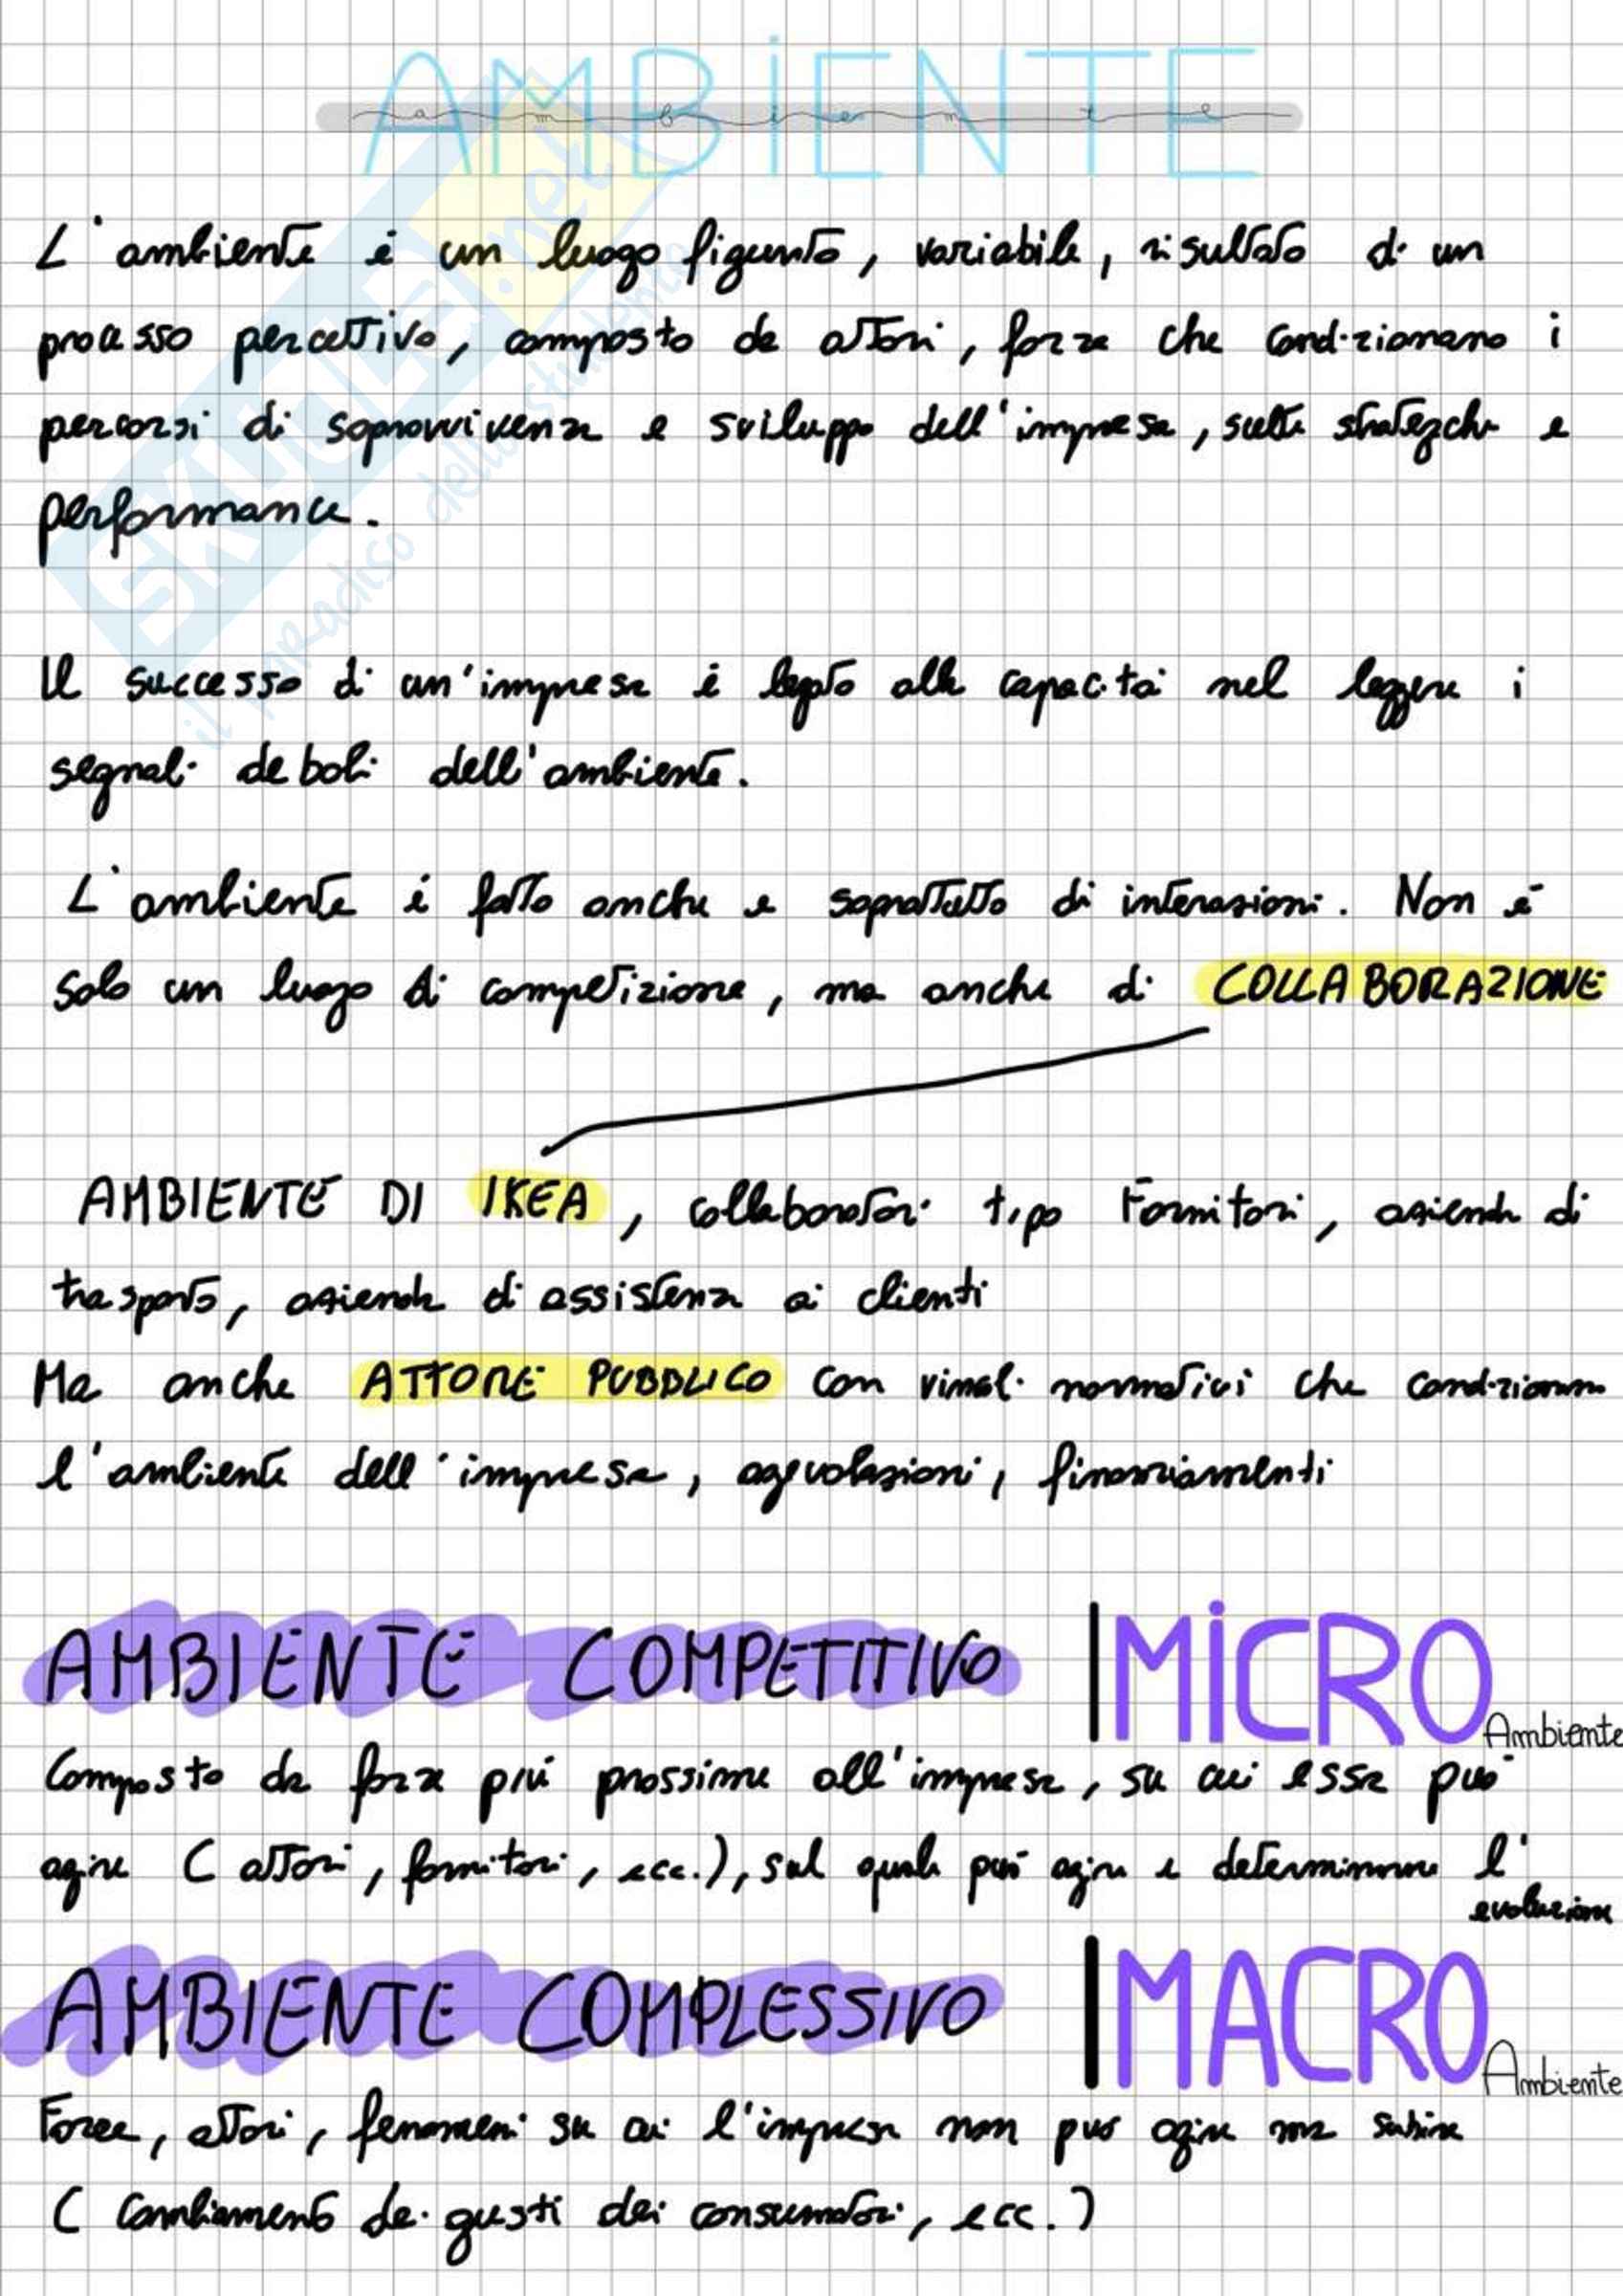 AMBIENTE
ambiente
L'ambiente è un luogo figurato, variabile, risultato di un
processo percettivo, composto da attori, forze che condizionano i
percorsi di sopravvivenza e sviluppo dell'impresa, scelte strategiche e
performance.
Il successo di un'impresa è legato alla capacità nel leggere i
segnali deboli dell'ambiente.
L'ambiente è fatto anche e soprattutto di interazioni. Non è
solo un luogo di competizione, ma anche di COLLABORAZIONE
AMBIENTE DI IKEA, collaboratori tipo Fornitori, aziende di
trasporto, aziende di assistenza ai clienti
Ma anche ATTORE PUBBLICO con vincoli normativi che condizionano
l'ambiente dell'impresa, agevolazioni, finanziamenti
AMBIENTE COMPETITIVO | MICRO Ambiente
Composto da forze più prossime all'impresa, su cui essa può
agire (attori, fornitori, ecc.), sul quale può agire e determinarne l'
evoluzione
AMBIENTE COMPLESSIVO | MACRO Ambiente
Forze, attori, fenomeni su cui l'impresa non può agire ma subire
(Cambiamento dei gusti dei consumatori, ecc.)
SKUOLA.net
il paradiso dello studente